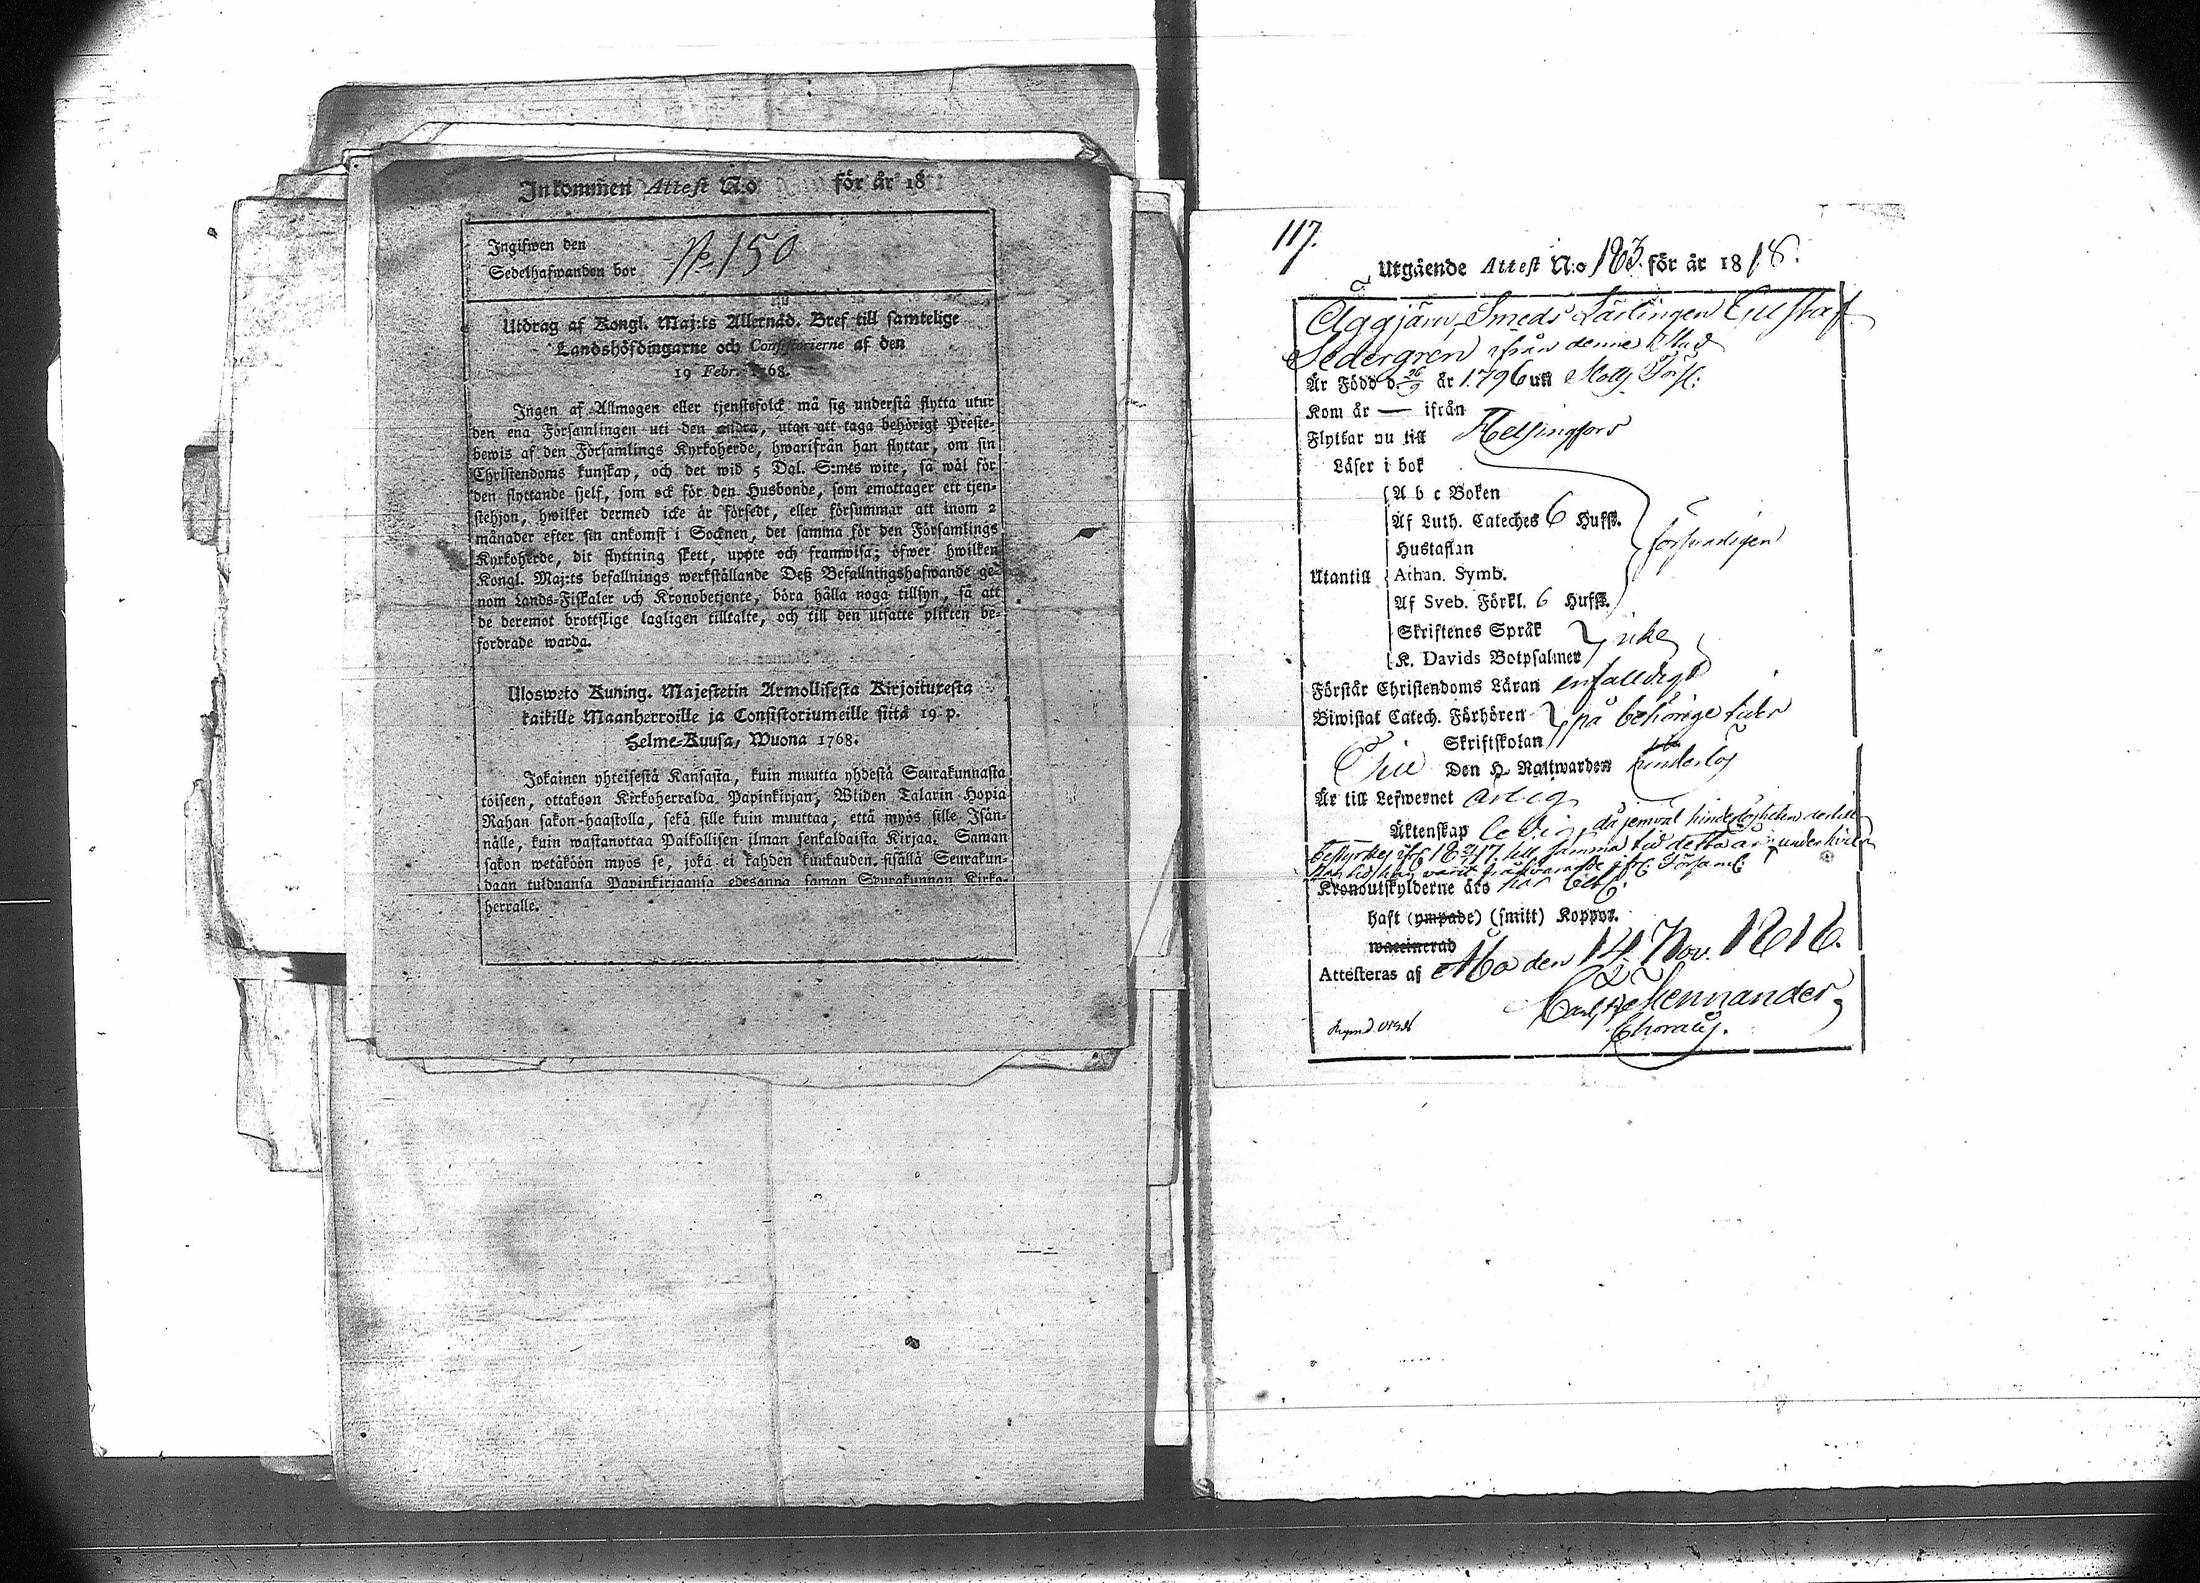 Inkommen Attest N:o för år 18
Ingifwen den
Sedelhafwanden bor No 150
Utdrag af Kongl. Maj:ts Allernåd. Bref till samtelige
Landshöfdingarne och Consistorierne af den
19 Febr. 1768.
Ingen af Allmogen eller tjenstefolck må sig understå flytta utur
den ena Församlingen uti den andra, utan att taga behörigt Preste-
bewis af den Församlings Kyrkoherde, hwarifrån han flyttar, om sin
Christendoms kunskap, och det wid 5 Dal. S:mts wite, så wäl för
den flyttande sjelf, som ock för den Husbonde, som emottager ett tjen-
stehjon, hwilket dermed icke är försedt, eller försummar att inom 2
månader efter sin ankomst i Socknen, det samma för den Församlings
Kyrkoherde, dit flyttning skett, uppte och framwisa; öfwer hwilken
Kongl. Maj:ts befallnings werkställande Deß Befallningshafwande ge-
nom Lands-Fiskaler och Kronobetjente, böra hålla noga tillsyn, så att
de deremot brottslige lagligen tilltalte, och till den utsatte plikten be-
fordrade warda.
Ulosweto Kuning. Majestetin Armollisesta Kirjoituresta
kaikille Maanherroille ja Consistoriumeille siitä 19 p.
Helme-Kuusa, Wuona 1768.
Jokainen yhteisestä Kansasta, kuin muutta yhdestä Seurakunnasta
toiseen, ottakoon Kirkoherralda Papinkirjan, Wliden Talarin Hopia
Rahan sakon-haastolla, sekä sille kuin muuttaa, että myös sille Isän-
nälle, kuin wastanottaa Palkollisen ilman senkaldaista Kirjaa. Saman
sakon wetäköön myös se, joka ei kahden kuukauden sisällä Seurakun-
daan tulduansa Papinkirjaansa edesanna saman Seurakunnan Kirko-
herralle.
117.
Utgående Attest N:o 183. för år 1818.
Smeds Lärlingen Gustaf
Sedergren ifrån denne Stad
Är Född d. 26/9 år 1796 uti Församl:
Kom år — ifrån
Flyttar nu till Helsingfors
Läser i bok
A b c Boken
Af Luth. Cateches 6 Hufst.
Hustaflan
försvarligen
Utantill Athan. Symb.
Af Sveb. Förkl. 6 Hufst.
Skriftenes Språk
icke
K. Davids Botpsalmer
Förstår Christendoms Läran enfaldigt
Biwistat Catech. Förhören på behörige tider
Skriftskolan
Den H. Nattwarden hinderlös
Är till Lefwernet ärlig
Äktenskap ledig, då jemväl hinderlösheten dertill
samma tid detta år, under hvilken
Församl:
Kronoutskylderne äro
haft (ympade) (smitt) Koppor.
waccinerad
Attesteras af Åbo den 14 Nov. 1818.